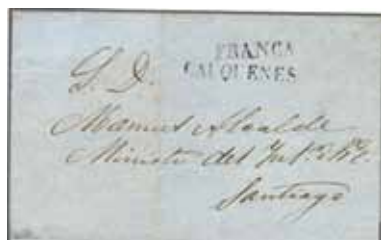 FRANCA
CAUQUENES
S. D.
Manuel Alcalde
Ministro del
Santiago